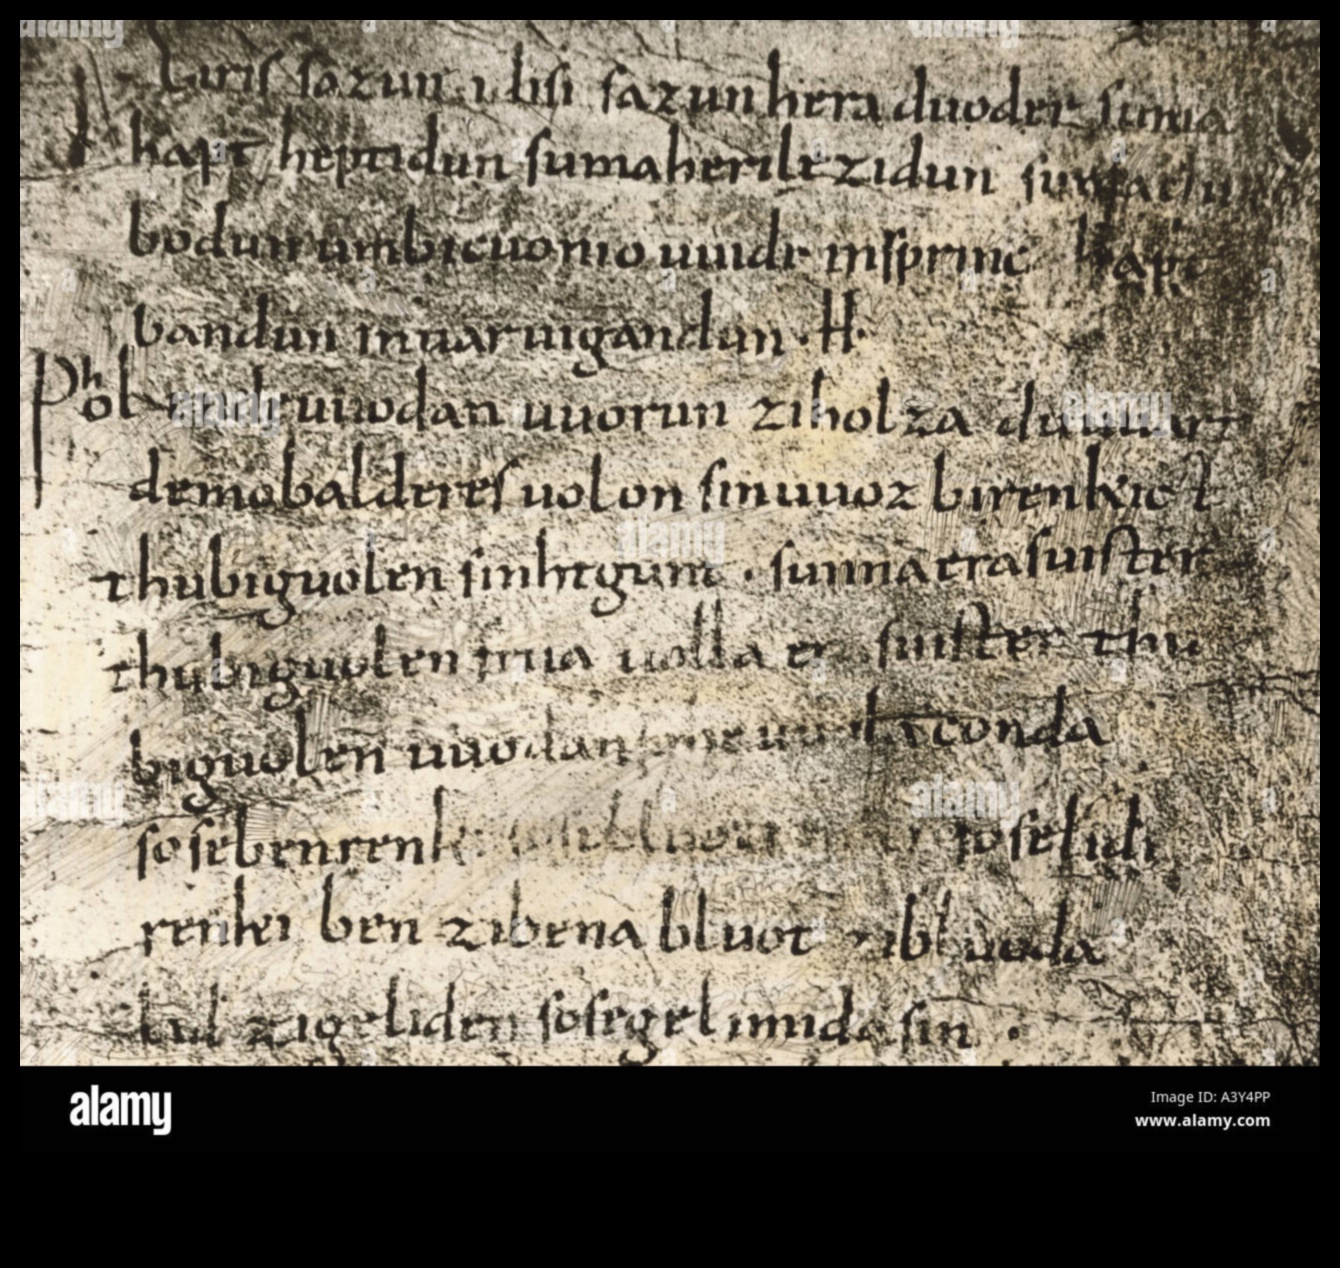 Eiris sazun idisi sazun hera duoder suma
hapt heptidun suma heri lezidun suma clu
bodun umbi cuonio uuidi insprinc hapt
bandun inuar uigandun · H ·
Phol ende uuodan uuorun ziholza du uuart
demo balderes uolon sin uuoz birenkict
thu biguolen sinhtgunt · sunna era suister
thu biguolen friia uolla era suister thu
biguolen uuodan so he uuola conda
sose benrenki sose bluotrenki sose lidi
renki ben zi bena bluot zi bluoda
lid zi geliden sose gelimida sin ·
alamy
Image ID: A3Y4PP
www.alamy.com